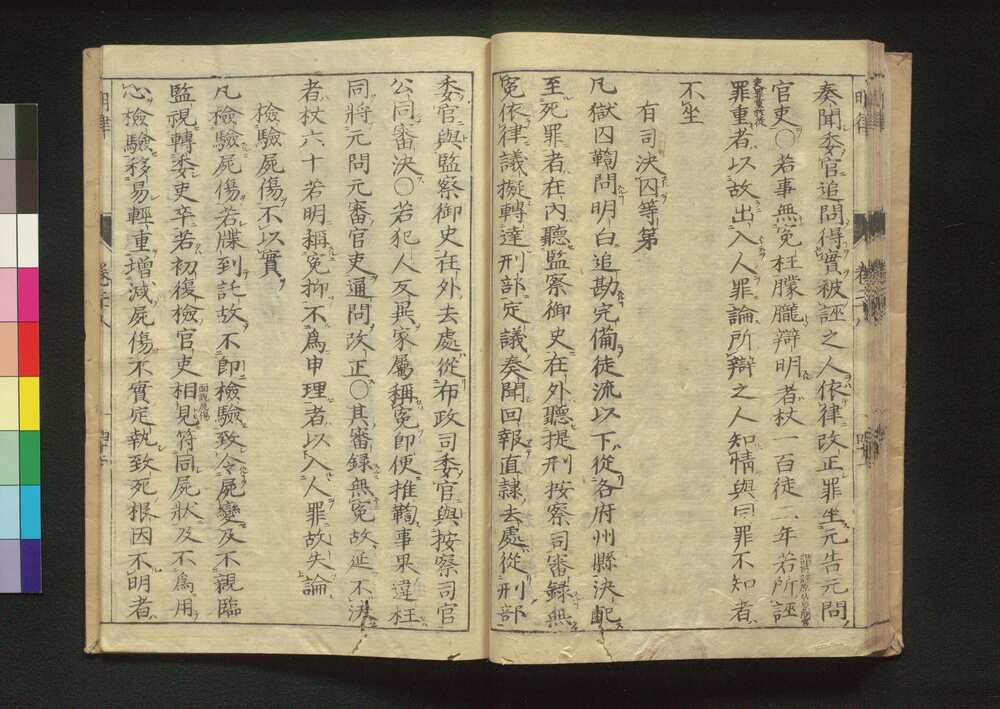 奏聞委官追問得實被誣之人依律改正罪坐元告元問
官吏○若事無冤枉朦朧辯明者杖一百徒三年若所誣
罪重者以故出入人罪論所辯之人知情與同罪不知者
不坐
有司決囚等第
凡獄囚鞫問明白追勘完備徒流以下從各府州縣決配
至死罪者在內聽監察御史在外聽提刑按察司審録無
冤依律議擬轉達刑部定議奏聞回報直隸去處從刑部
委官與監察御史在外去處從布政司委官與按察司官
公同審決○若犯人反異家屬稱冤即便推鞫事果違枉
同將元問元審官吏通問改正○其審録無冤故延不決
者杖六十若明稱冤抑不爲申理者以入人罪故失論
檢驗屍傷不以實
凡檢驗屍傷若牒到託故不即檢驗致令屍變及不親臨
監視轉委吏卒若初復檢官吏相見符同屍狀及不爲用
心檢驗移易輕重增減屍傷不實定執致死根因不明者